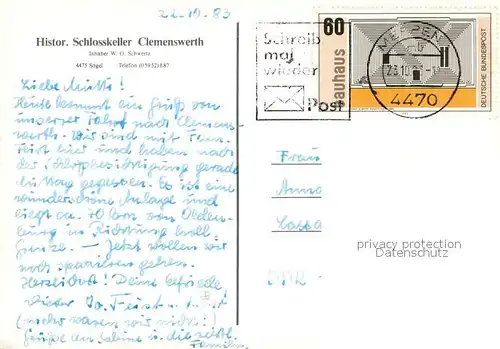 22.10.83
Histor. Schlosskeller Clemenswerth
Inhaber W. O. Schwertz
4475 Sögel Telefon (05952) 887
Liebe Mutti!
Heute kommt ein Gruß von
unserer Fahrt nach Clemens-
werth. Wir sind mit Fam.
Feist hier und haben nach
der Schloßbesichtigung gerade
zu Mittag gegessen. Es ist eine
wunderschöne Anlage und
liegt ca. 70 km von Olden-
burg in Richtung holl.
Grenze. — Jetzt wollen wir
noch spazieren gehen.
Herzlichst! Deine
Feist
(mehr waren wir nicht!)
Grüße an Sabine u. die
Familie
Schreib
mal
wieder
Post
MEPPEN
23.10.83
4470
60
Bauhaus
DEUTSCHE BUNDESPOST
Frau
Anna
DDR
privacy protection
Datenschutz